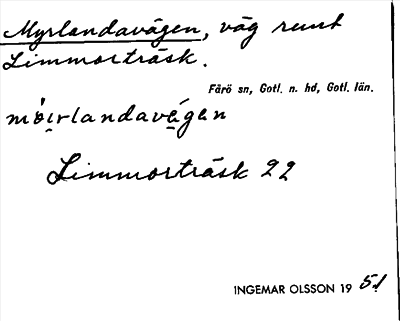 Myrlandavägen, väg runt
Limmorträsk.
Fårö sn, Gotl. n. hd, Gotl. län.
möi̯rlandavé̱gen
Limmorträsk 22
INGEMAR OLSSON 19 51